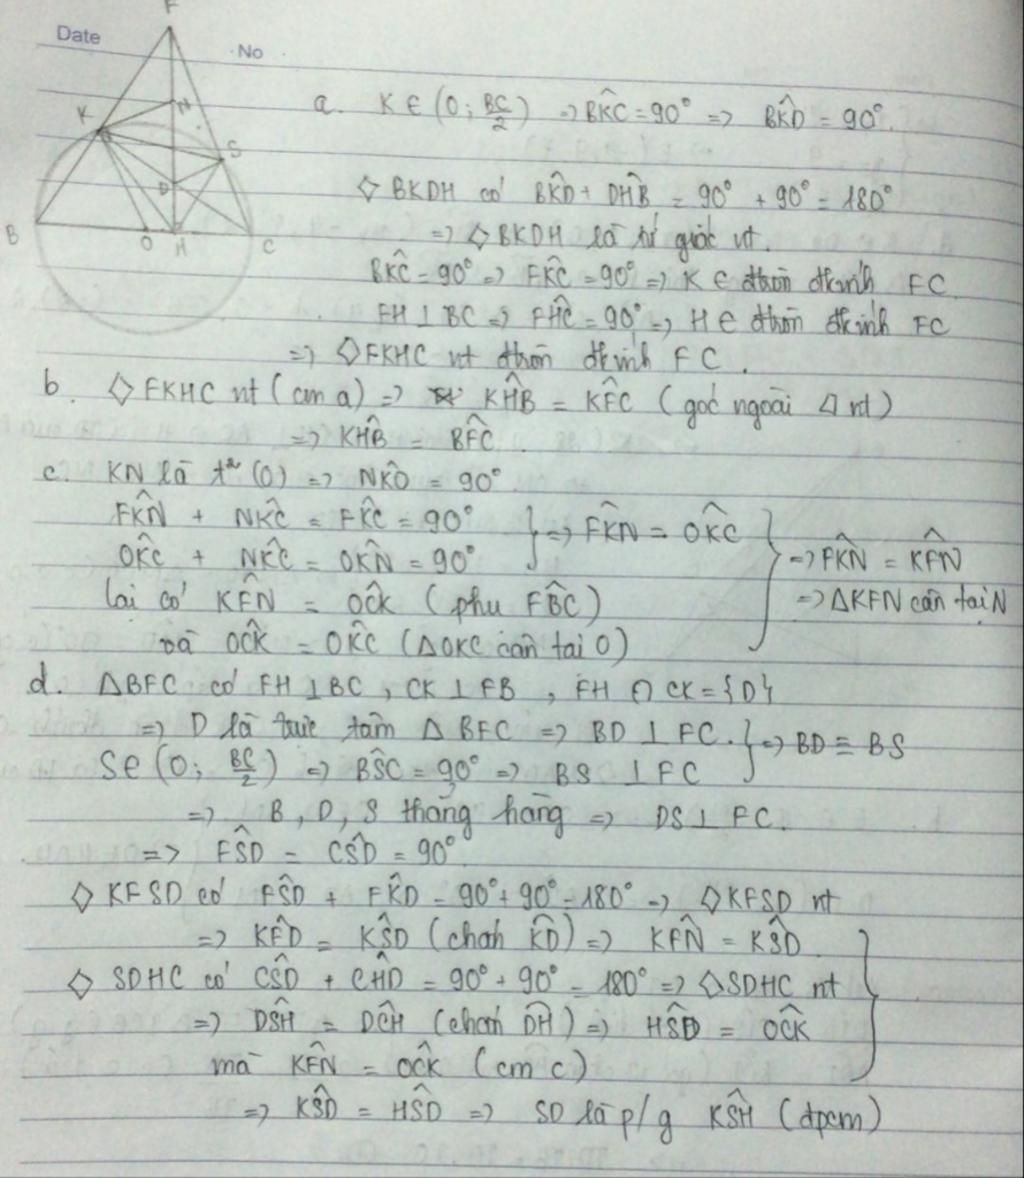 F
Date
No
K
N
S
D
B
O
H
C
a. K ∈ (O; BC/2) => BK̂C = 90° => BK̂D = 90°.
◇ BKDH có BK̂D + DĤB = 90° + 90° = 180°
=> ◇ BKDH là tứ giác nt.
BK̂C = 90° => FK̂C = 90° => K ∈ đtròn đkính FC
FH ⊥ BC => FĤC = 90° => H ∈ đtròn đkính FC
=> ◇ FKHC nt đtròn đkính FC.
b. ◇ FKHC nt (cm a) => KĤB = KF̂C (góc ngoài △ nt)
=> KĤB = BF̂C.
c. KN là t² (O) => NK̂O = 90°
FK̂N + NK̂C = FK̂C = 90°
OK̂C + NK̂C = OK̂N = 90°
} => FK̂N = OK̂C
lại có KF̂N = OĈK (phụ FB̂C)
và OĈK = OK̂C (△OKC cân tại O)
} => FK̂N = KF̂N
=> △KFN cân tại N
d. △BFC có FH ⊥ BC, CK ⊥ FB, FH ∩ CK = {D}
=> D là trực tâm △ BFC => BD ⊥ FC.
S ∈ (O; BC/2) => BŜC = 90° => BS ⊥ FC
} => BD ≡ BS
=> B, D, S thẳng hàng => DS ⊥ FC.
=> FŜD = CŜD = 90°
◇ KFSD có FŜD + FK̂D = 90° + 90° = 180° => ◇ KFSD nt
=> KF̂D = KŜD (chắn KD) => KF̂N = KŜD
◇ SDHC có CŜD + CĤD = 90° + 90° = 180° => ◇ SDHC nt
=> DŜH = DĈH (chắn DH) => HŜD = OĈK
mà KF̂N = OĈK (cm c)
=> KŜD = HŜD => SD là p/g KŜH (đpcm)